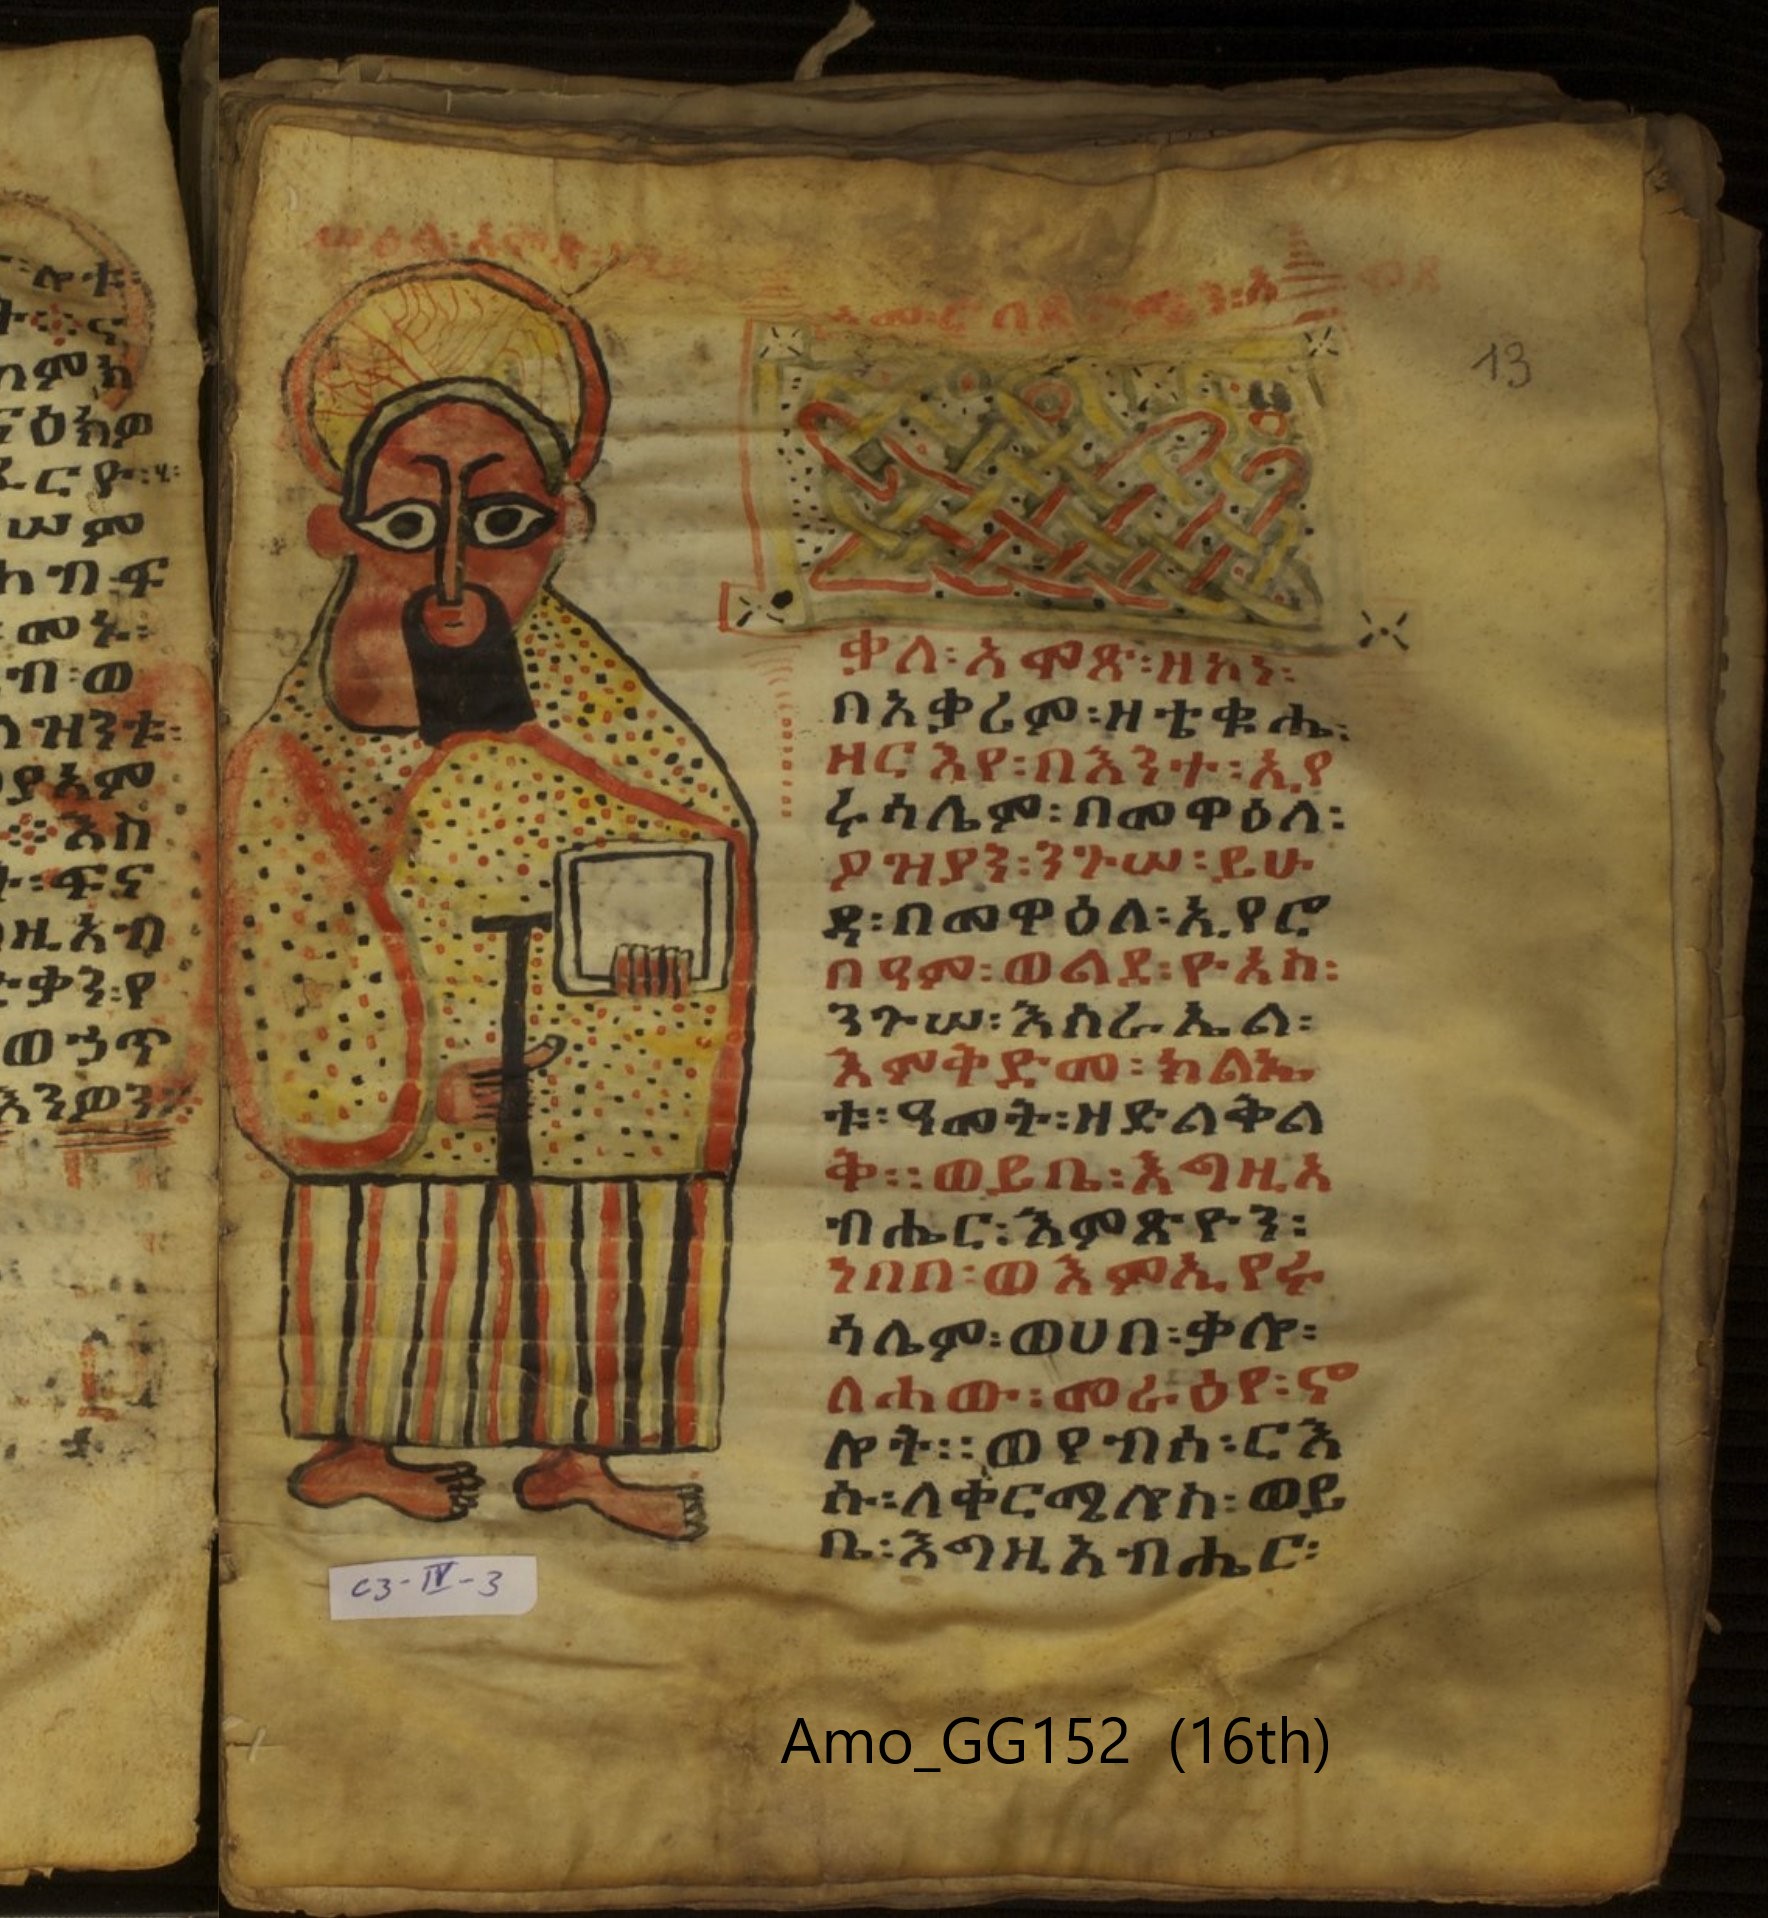 ሎቱ
ምክ
ዕክዎ
ርዮ
ሠም
ብፍ
መኑ፡
ብ፡ወ
ዝንቱ፡
ያአም
እስ
ፍና
ዚአብ
ቃን፡የ
ወኃጥ
እንዎን
13
ቃለ፡አሞጽ፡ዘኮነ፡
በአቃሪም፡ዘቴቁሔ፡
ዘርእየ፡በእንተ፡ኢየ
ሩሳሌም፡በመዋዕለ፡
ዖዝያን፡ንጉሠ፡ይሁ
ዳ፡በመዋዕለ፡ኢየሮ
በዓም፡ወልደ፡ዮአስ፡
ንጉሠ፡እስራኤል፡
እምቅድመ፡ክልኤ
ቱ፡ዓመት፡ዘድልቅል
ቅ፡፡ወይቤ፡እግዚአ
ብሔር፡እምጽዮን፡
ነበበ፡ወእምኢየሩ
ሳሌም፡ወሀበ፡ቃሎ፡
ለሐው፡መራዕየ፡ኖ
ሎት፡፡ወየብሰ፡ርእ
ሱ፡ለቀርሜሎስ፡ወይ
ቤ፡እግዚአብሔር፡
C3-IV-3
Amo_GG152 (16th)